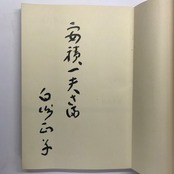 安積一夫様
白洲正子